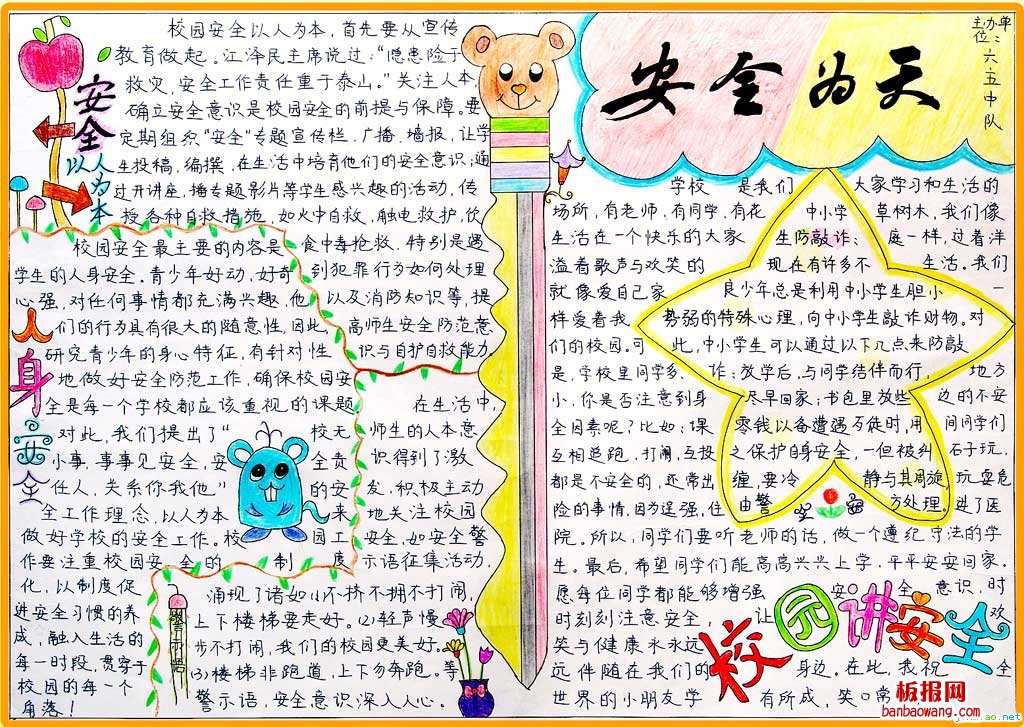 安全以人为本
校园安全以人为本，首先要从宣传
教育做起。江泽民主席说过：“隐患险于
救灾，安全工作责任重于泰山。”关注人本，
确立安全意识是校园安全的前提与保障。要
定期组织“安全”专题宣传栏，广播，墙报，让学
生投稿，编撰，在生活中培育他们的安全意识；通
过开讲座，播专题影片等学生感兴趣的活动，传
授各种自救措施，如火中自救，触电救护，饮
食中毒抢救，特别是遇
到犯罪行为如何处理
以及消防知识等，提
高师生安全防范意
识与自护自救能力。
人身安全
校园安全最主要的内容是
学生的人身安全。青少年好动，好奇
心强，对任何事情都充满兴趣，他
们的行为具有很大的随意性，因此，
研究青少年的身心特征，有针对性
地做好安全防范工作，确保校园安
全是每一个学校都应该重视的课题
对此，我们提出了“校无
小事，事事见安全，安全责
任人，关系你我他”的安
全工作理念，以人为本来
做好学校的安全工作。校园工
作要注重校园安全的制度
化，以制度促
进安全习惯的养
成，融入生活的
每一时段，贯穿于
校园的每一个
角落！
在生活中，
师生的人本意
识得到了激
发，积极主动
地关注校园
安全，如安全警
示语征集活动，
警示语
涌现了诸如(1)不挤不拥不打闹，
上下楼梯要走好。(2)轻声慢
步不打闹，我们的校园更美好。
(3)楼梯非跑道，上下勿奔跑。等
警示语，安全意识深入人心。
安全为天
主办单位：六五中队
学校是我们大家学习和生活的
场所，有老师，有同学，有花草树木，我们像
生活在一个快乐的大家庭一样，过着洋
溢着歌声与欢笑的生活。我们
就像爱自己家一
样爱着我
们的校园。可
是，学校里同学多，地方
小，你是否注意到身边的不安
全因素呢？比如：课间同学们
互相追跑，打闹，互投石子玩，
都是不安全的，还常出玩耍危
险的事情，因为逞强，住进了医
院。所以，同学们要听老师的话，做一个遵纪守法的学
生。最后，希望同学们能高高兴兴上学，平平安安回家。
愿每位同学都能够增强安全意识，时
时刻刻注意安全，让欢
笑与健康永永远
远伴随在我们的身边。在此，我祝全
世界的小朋友学有所成，笑口常
中小学
生防敲诈：
现在有许多不
良少年总是利用中小学生胆小
势弱的特殊心理，向中小学生敲诈财物。对
此，中小学生可以通过以下几点来防敲
诈：放学后，与同学结伴而行，
尽早回家；书包里放些
零钱以备遭遇歹徒时，用
之保护自身安全，一但被纠
缠，要冷静与其周旋
由警方处理。
校园讲安全
板报网
banbaowang.com